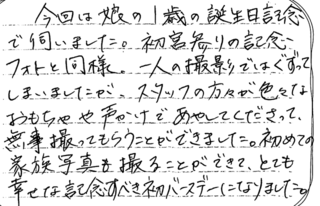 今回は娘の1歳の誕生日記念
で伺いました。初宮参りの記念
フォトと同様。一人の撮影ではぐずって
しまいましたが、スタッフの方々が色々な
おもちゃや声かけであやしてくださって、
無事撮ってもらうことができました。初めての
家族写真も撮ることができて、とても
幸せな記念すべき初バースデーになりました。